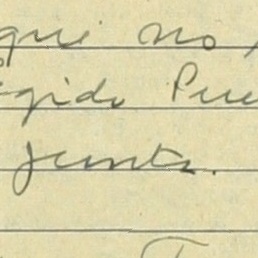 qui no
gido Pue
junta.